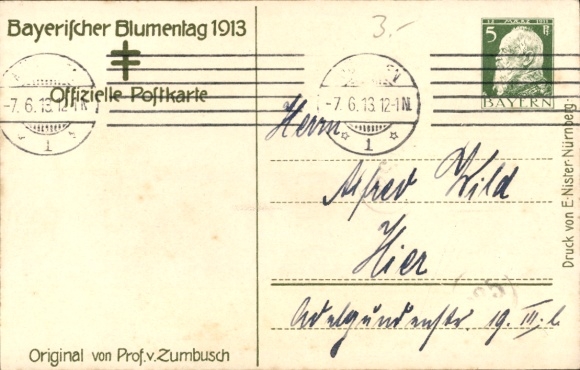 Bayerischer Blumentag 1913
Offizielle Postkarte
3.-
12. MÄRZ 1911
5 Pf
BAYERN
-7. 6. 13. 12-1 N.
1
-7. 6. 13. 12-1 N.
1
Herrn
Alfred Wild
Hier
Adelgundenstr. 19. III. l.
Original von Prof. v. Zumbusch
Druck von E. Nister Nürnberg.